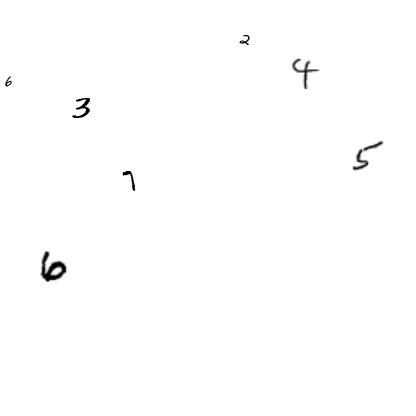 2
4
6
3
5
7
6